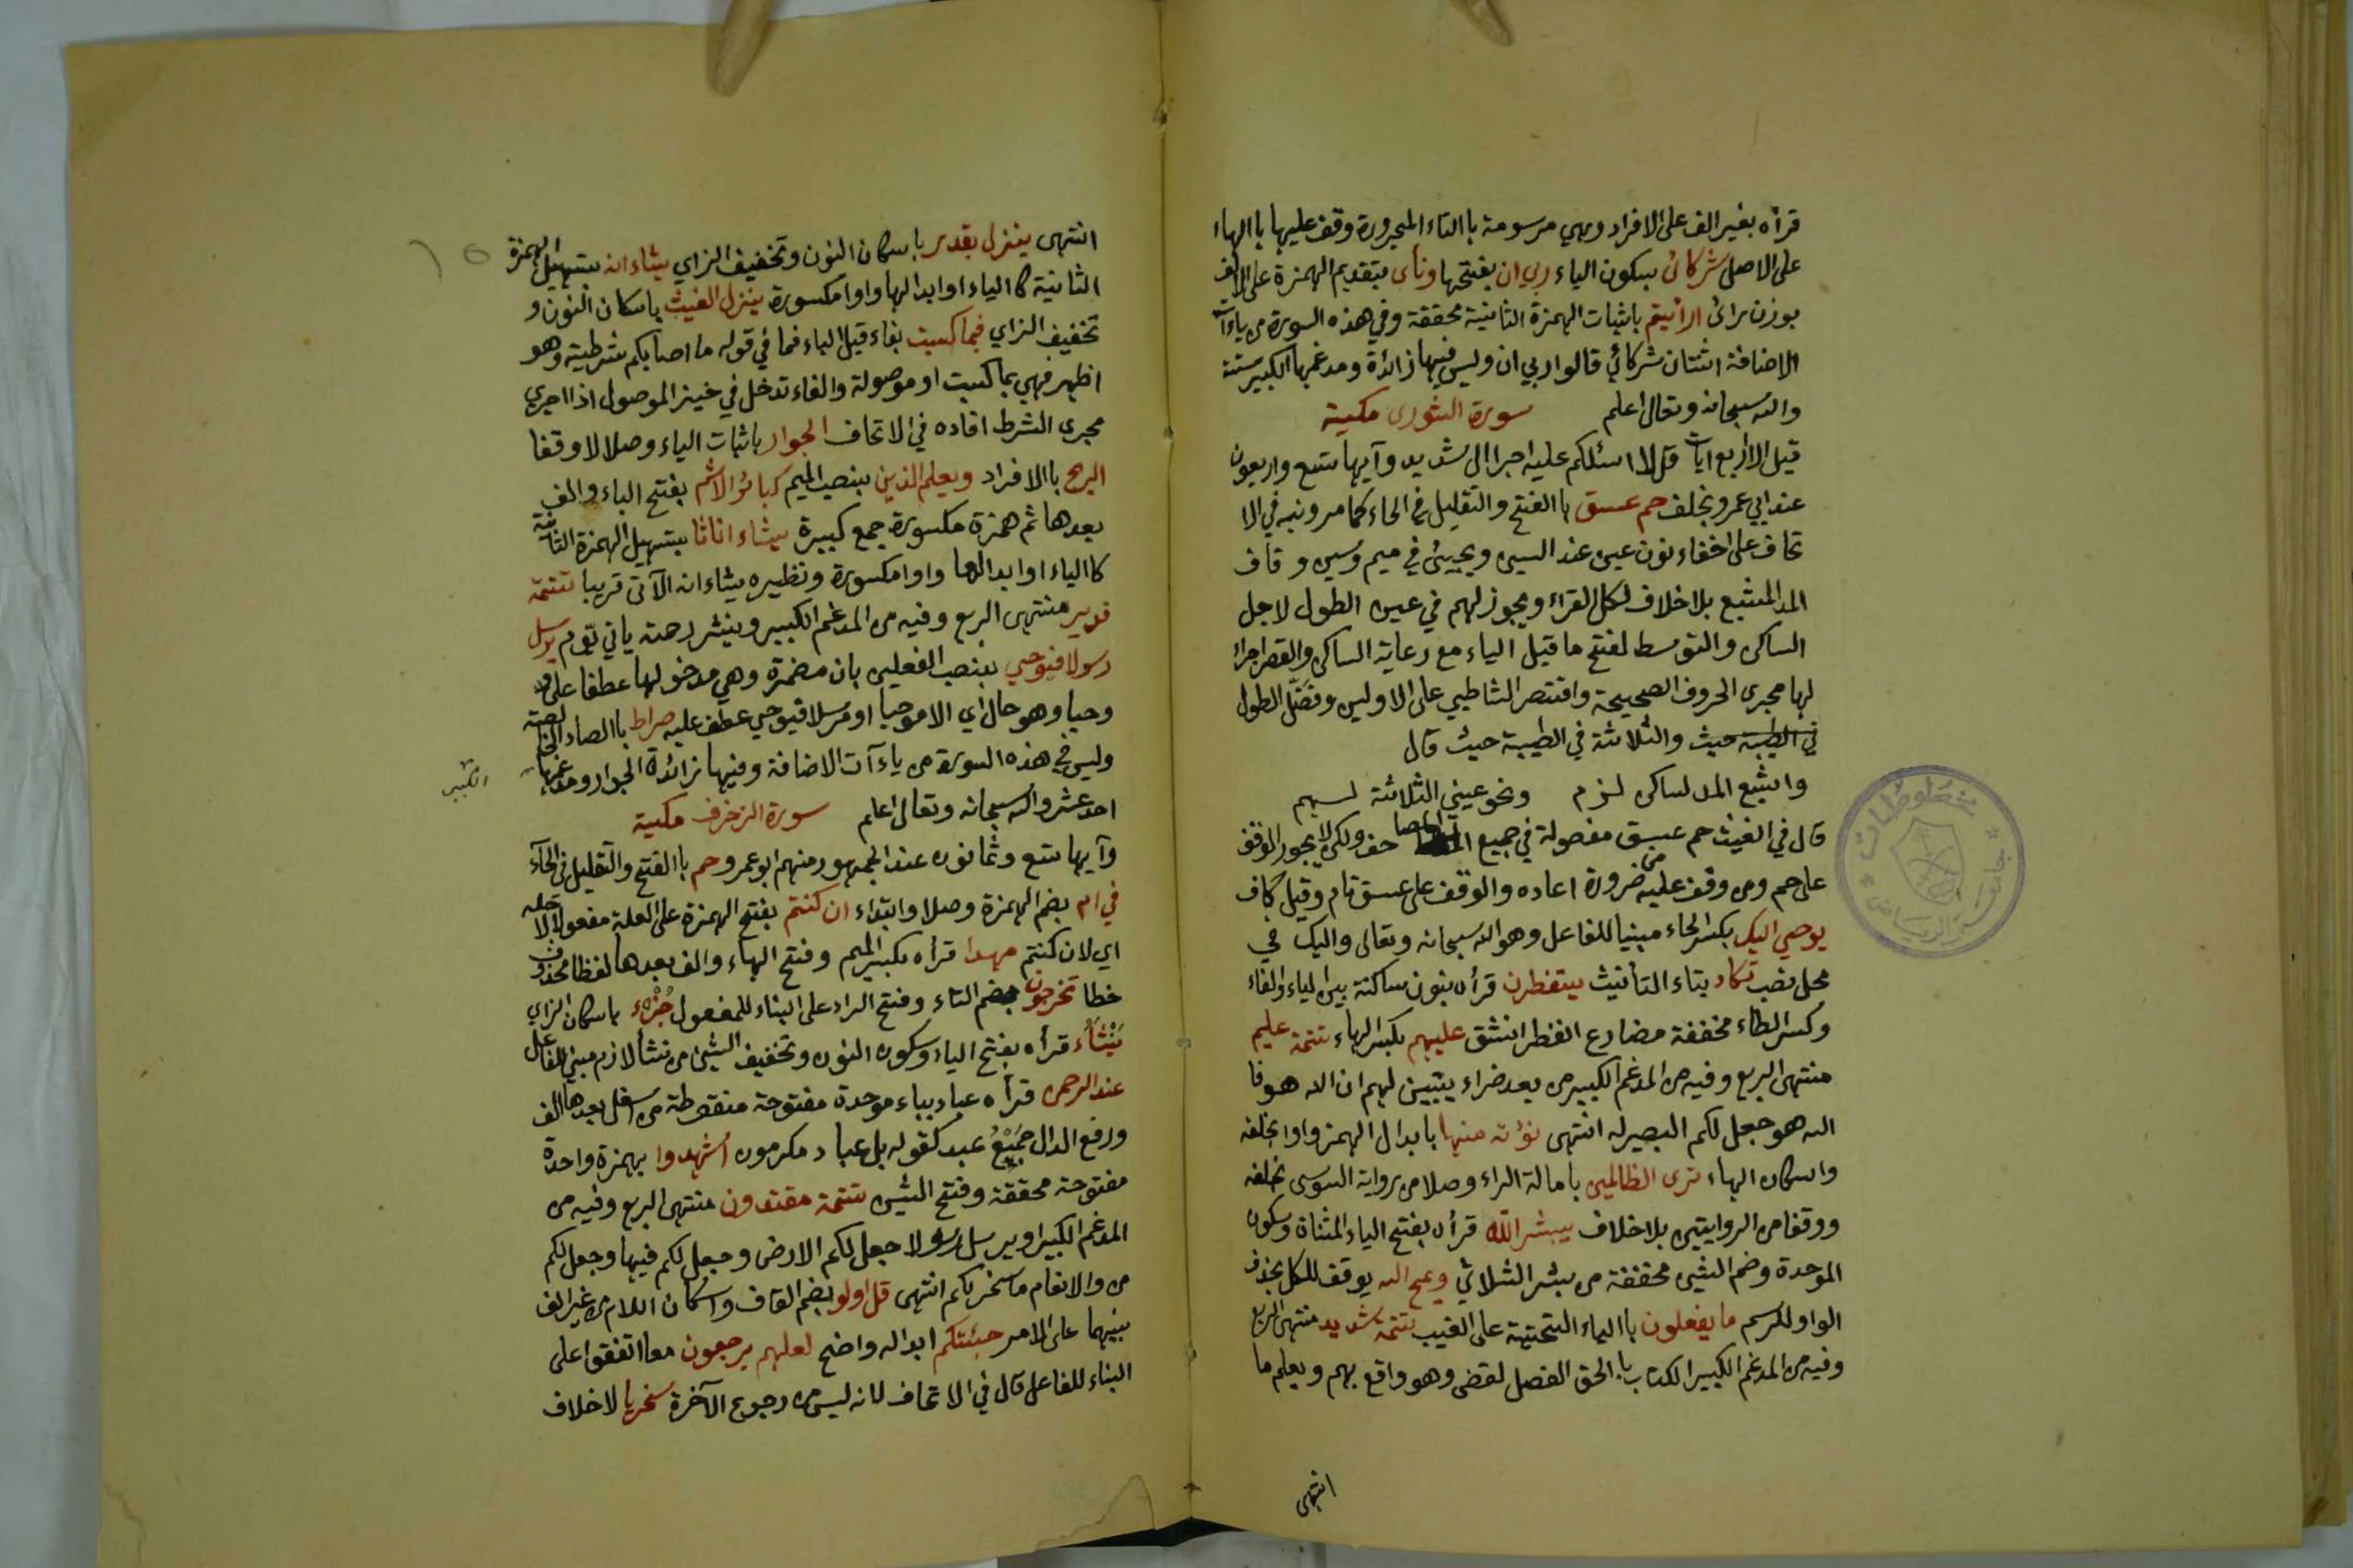 قرأه بغير الف على الافراد وهي مرسومة باالتاء المجرورة وقف عليها باالهاء
على الاصل شركائ بسكون الياء ربي ان بفتحها ونأى بتقديم الهمزة على الالف
بوزن رائ ارأيتم باثبات الهمزة الثانية محققة وفي هذه السورة من ياءآت
الاضافة اثنتان شركائي قالوا ربي ان وليس فيها زائدة ومدغمها الكبير ستة
والله سبحانه وتعالى اعلم سورة الشورى مكية
قيل الا اربع ايات قل لا اسئلكم عليه اجرا الى شديد وآيها تسع واربعون
عند ابي عمرو بخلف حم عسق باالفتح والتقليل في الحاء كما مر ونبه في الا
تحاف على اخفاء نون عين عند السين ويجيئ في ميم وسين وقاف
المد المشبع بلا خلاف لكل القراء ويجوز لهم في عين الطول لاجل
الساكن والتوسط لفتح ما قبل الياء مع رعاية الساكن والقصر اجراء
لها مجرى الحروف الصحيحة واقتصر الشاطبي على الاولين وفضّل الطول
في الطيبة حيث والثلاثة في الطيبة حيث قال
واشبع المد لساكن لزم ونحو عين الثلاثة لهم
قال في الغيث حم عسق مفصولة في جميع المصاحف ولكن لا يجوز الوقف
على حم ومن وقف عليه من ضرورة اعاده والوقف على عسق تام وقيل كاف
يوحي اليك بكسر الحاء مبنيا للفاعل وهو الله سبحانه وتعالى واليك في
محل نصب تكاد بتاء التأنيث ينفطرن قرأه بنون ساكنة بين الياء والفاء
وكسر الطاء مخففة مضارع انفطر انشق عليهم بكسر الهاء تتمة عليم
منتهى الربع وفيه من المدغم الكبير من بعد ضراء يتبين لهم ان الله هو فا
الله هو جعل لكم البصير له انتهى نؤته منها بابدال الهمز واوا بخلفه
واسكان الهاء ترى الظالمين بامالة الراء وصلا من رواية السوسي بخلفه
ووقفا من الروايتين بلا خلاف يبشر الله قرأه بفتح الياء المثناة وسكون
الموحدة وضم الشين مخففة من بشر الثلاثي ويمح الله يوقف للكل بحذف
الواو للرسم ما يفعلون باالياء التحتية على الغيب تتمة شديد منتهى الربع
وفيه من المدغم الكبير الكتاب باالحق الفصل لقضى وهو واقع بهم ويعلم ما
انتهى
انتهى ينزل بقدر باسكان النون وتخفيف الزاي يشاء انه بتسهيل الهمزة
الثانية كاالياء او ابدالها واوا مكسورة ينزل الغيث باسكان النون و
تخفيف الزاي فبما كسبت بفاء قبل الباء فما في قوله ما اصابكم شرطية وهو
اظهر فهي بما كسبت او موصولة والفاء تدخل في خبر الموصول اذا اجري
مجرى الشرط افاده في الاتحاف الجوار باثبات الياء وصلا لا وقفا
الريح باالافراد ويعلم الذين بنصب الميم كبائر الاثم بفتح الباء والف
بعدها ثم همزة مكسورة جمع كبيرة يشاء اناثا بتسهيل الهمزة الثانية
كاالياء او ابدالها واوا مكسورة ونظيره يشاء انه الآتى قريبا تتمة
قدير منتهى الربع وفيه من المدغم الكبير وينشر رحمته ياتي يوم يرسل
رسولا فيوحي بنصب الفعلين بان مضمرة وهي مدخولها عطفا على
وحيا وهو حال اي الا موحيا او مرسلا فيوحي عطف عليه صراط باالصاد الخالصة
وليس في هذه السورة من ياءآت الاضافة وفيها زائدة الجوار ومدغمها
الكبير
احد عشر والله سبحانه وتعالى اعلم سورة الزخرف مكية
وآيها تسع وثمانون عند الجمهور ومنهم ابو عمرو حم باالفتح والتقليل في الحآء
في ام بضم الهمزة وصلا وابتداء ان كنتم بفتح الهمزة على العلة مفعولا لاجله
اي لان كنتم مهدا قرأه بكسر الميم وفتح الهاء والف بعدها لفظا محذوف
خطا تخرجون بضم التاء وفتح الراء على البناء للمفعول جُزْءًا باسكان الزاي
يَنْشَأُ قرأه بفتح الياء وسكون النون وتخفيف الشين من نشأ لازم مبني للفاعل
عند الرحمن قرأه عباد بباء موحدة مفتوحة منقوطة من اسفل بعدها الف
ورفع الدال جَمْعُ عبد كقوله بل عباد مكرمون أشهدوا بهمزة واحدة
مفتوحة محققة وفتح الشين تتمة مقتدون منتهى الربع وفيه من
المدغم الكبير او يرسل رسولا جعل لكم الارض وجعل لكم فيها وجعل لكم
من والانعام ما سخر لكم انتهى قل اولو بضم القاف واسكان اللام من غير الف
بينهما على الامر جئتكم ابداله واضح لعلهم يرجعون معا اتفقوا على
البناء للفاعل قال في الاتحاف لانه ليس من رجوع الآخرة سخريا لا خلاف
مخطوطات
جامعة الرياض